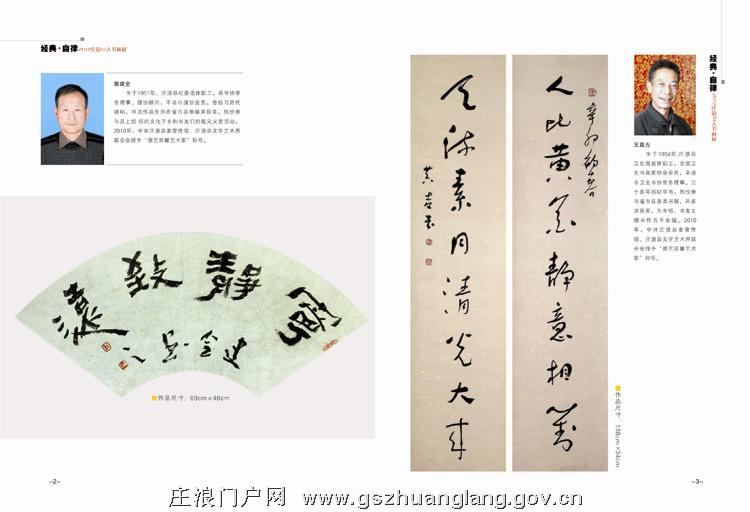 经典·自律
郭建全
生于1951年，庄浪县纪委退休职工。县书协常
务理事、道协顾问，平凉市道协会员。曾临习历代
碑帖，书法作品先后在省市县参展并获奖。热忱参
与县上组织的文化下乡和书友们的赈灾义卖活动。
2010年，中共庄浪县委宣传部、庄浪县文学艺术界
联合会授予“德艺双馨艺术家”称号。
作品尺寸：69cm×46cm
-2-
人比黄花静意相
天流素月清光大来
经典·自律
生于1954年，庄浪县
卫生局退休职工。全国卫
生书画家协会会员，平凉
市卫生书协常务理事。三
十多年临帖学书，热忱参
与省市县各类书展，并多
次获奖。为乡邻、书友义
赠书作五千余幅。2010
年，中共庄浪县委宣传
部、庄浪县文学艺术界联
合会授予“德艺双馨艺术
家”称号。
作品尺寸：138cm×34cm
-3-
庄浪门户网 www.gszhuanglang.gov.cn